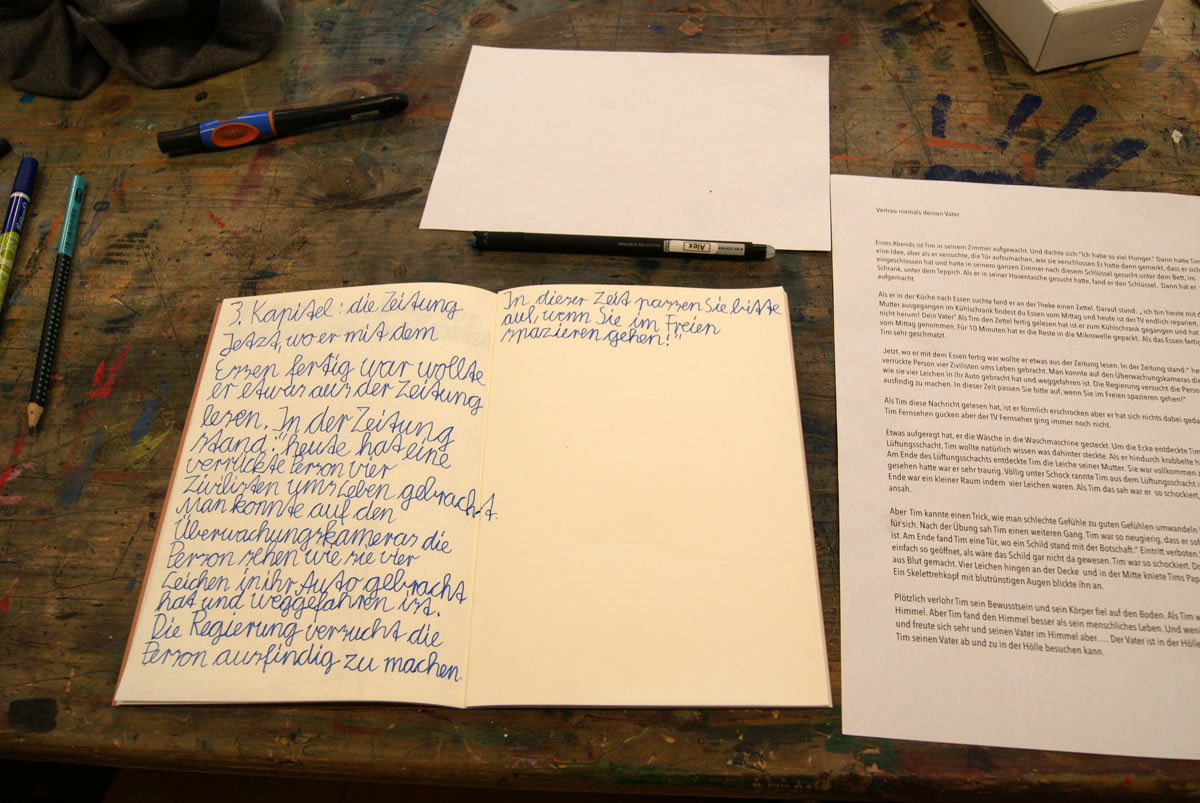 3. Kapitel: die Zeitung
Jetzt, wo er mit dem
Essen fertig war wollte
er etwas aus der Zeitung
lesen. In der Zeitung
stand: "heute hat eine
verrückte Person vier
Zivilisten ums Leben gebracht.
Man konnte auf den
Überwachungskameras die
Person sehen wie sie vier
Leichen in ihr Auto gebracht
hat und weggefahren ist.
Die Regierung versucht die
Person ausfindig zu machen.
In dieser Zeit passen Sie bitte
auf, wenn Sie im Freien
spazieren gehen!"
Alex
Vertrau niemals deinen Vater
Eines Abends ist Tim in seinem Zimmer aufgewacht. Und dachte sich:"Ich habe so viel Hunger." Dann hatte Tim
eine Idee, aber als er versuchte, die Tür aufzumachen, war sie verschlossen. Er hatte dann gemerkt, dass er sich
eingeschlossen hat und hatte in seinem ganzen Zimmer nach diesem Schlüssel gesucht unter dem Bett, im
Schrank, unter dem Teppich. Als er in seiner Hosentasche gesucht hatte, fand er den Schlüssel. Dann hat er
aufgemacht.
Als er in der Küche nach Essen suchte fand er an der Theke einen Zettel. Darauf stand: „ ich bin heute mit
Mutter ausgegangen im Kühlschrank findest du Essen vom Mittag und heute ist der TV endlich repariert,
nicht herum! Dein Vater" Als Tim den Zettel fertig gelesen hat ist er zum Kühlschrank gegangen und hat
vom Mittag genommen. Für 10 Minuten hat er die Reste in die Mikrowelle gepackt. Als das Essen fertig
Tim sehr geschmatzt.
Jetzt, wo er mit dem Essen fertig war wollte er etwas aus der Zeitung lesen. In der Zeitung stand:"
verrückte Person vier Zivilisten ums Leben gebracht. Man konnte auf den Überwachungskameras
wie sie vier Leichen in ihr Auto gebracht hat und weggefahren ist. Die Regierung versucht die
ausfindig zu machen. In dieser Zeit passen Sie bitte auf, wenn Sie im Freien spazieren gehen!"
Als Tim diese Nachricht gelesen hat, ist er förmlich erschrocken aber er hat sich nichts dabei
Tim Fernsehen gucken aber der TV Fernseher ging immer noch nicht.
Etwas aufgeregt hat, er die Wäsche in die Waschmaschine gesteckt. Um die Ecke entdeckte
Lüftungsschacht. Tim wollte natürlich wissen was dahinter steckte. Als er hindurch krabbelte
Am Ende des Lüftungsschachts entdeckte Tim die Leiche seiner Mutter. Sie war vollkommen
gesehen hatte war er sehr traurig. Völlig unter Schock rannte Tim aus dem Lüftungsschacht
Ende war ein kleiner Raum indem vier Leichen waren. Als Tim das sah war er so schockiert,
ansah.
Aber Tim kannte einen Trick, wie man schlechte Gefühle zu guten Gefühlen umwandeln
für sich. Nach der Übung sah Tim einen weiteren Gang. Tim war so neugierig, dass er
ist. Am Ende fand Tim eine Tür, wo ein Schild stand mit der Botschaft:" Eintritt verboten.
einfach so geöffnet, als wäre das Schild gar nicht da gewesen. Tim war so schockiert,
aus Blut gemacht. Vier Leichen hingen an der Decke und in der Mitte kniete Tims
Ein Skelettrehkopf mit blutrünstigen Augen blickte ihn an.
Plötzlich verlohr Tim sein Bewusstsein und sein Körper fiel auf den Boden. Als Tim
Himmel. Aber Tim fand den Himmel besser als sein menschliches Leben. Und
und freute sich sehr und seinen Vater im Himmel aber..... Der Vater ist in der Hölle
Tim seinen Vater ab und zu in der Hölle besuchen kann.